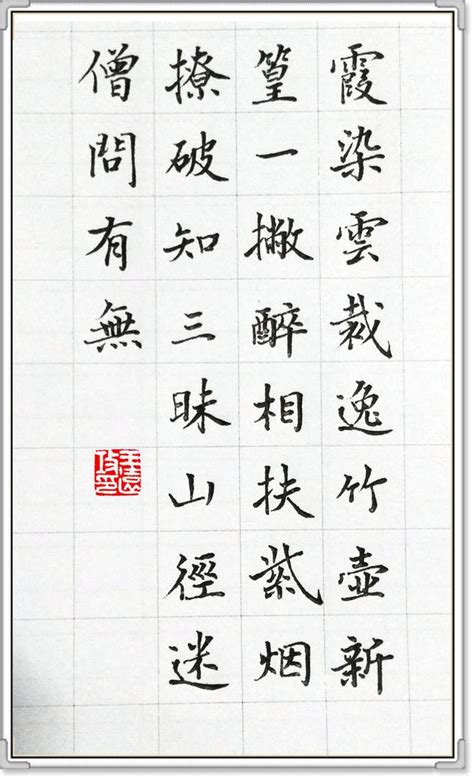 霞染雲裁逸竹壺新
篁一撇醉相扶紫烟
撩破知三昧山徑迷
僧問有無